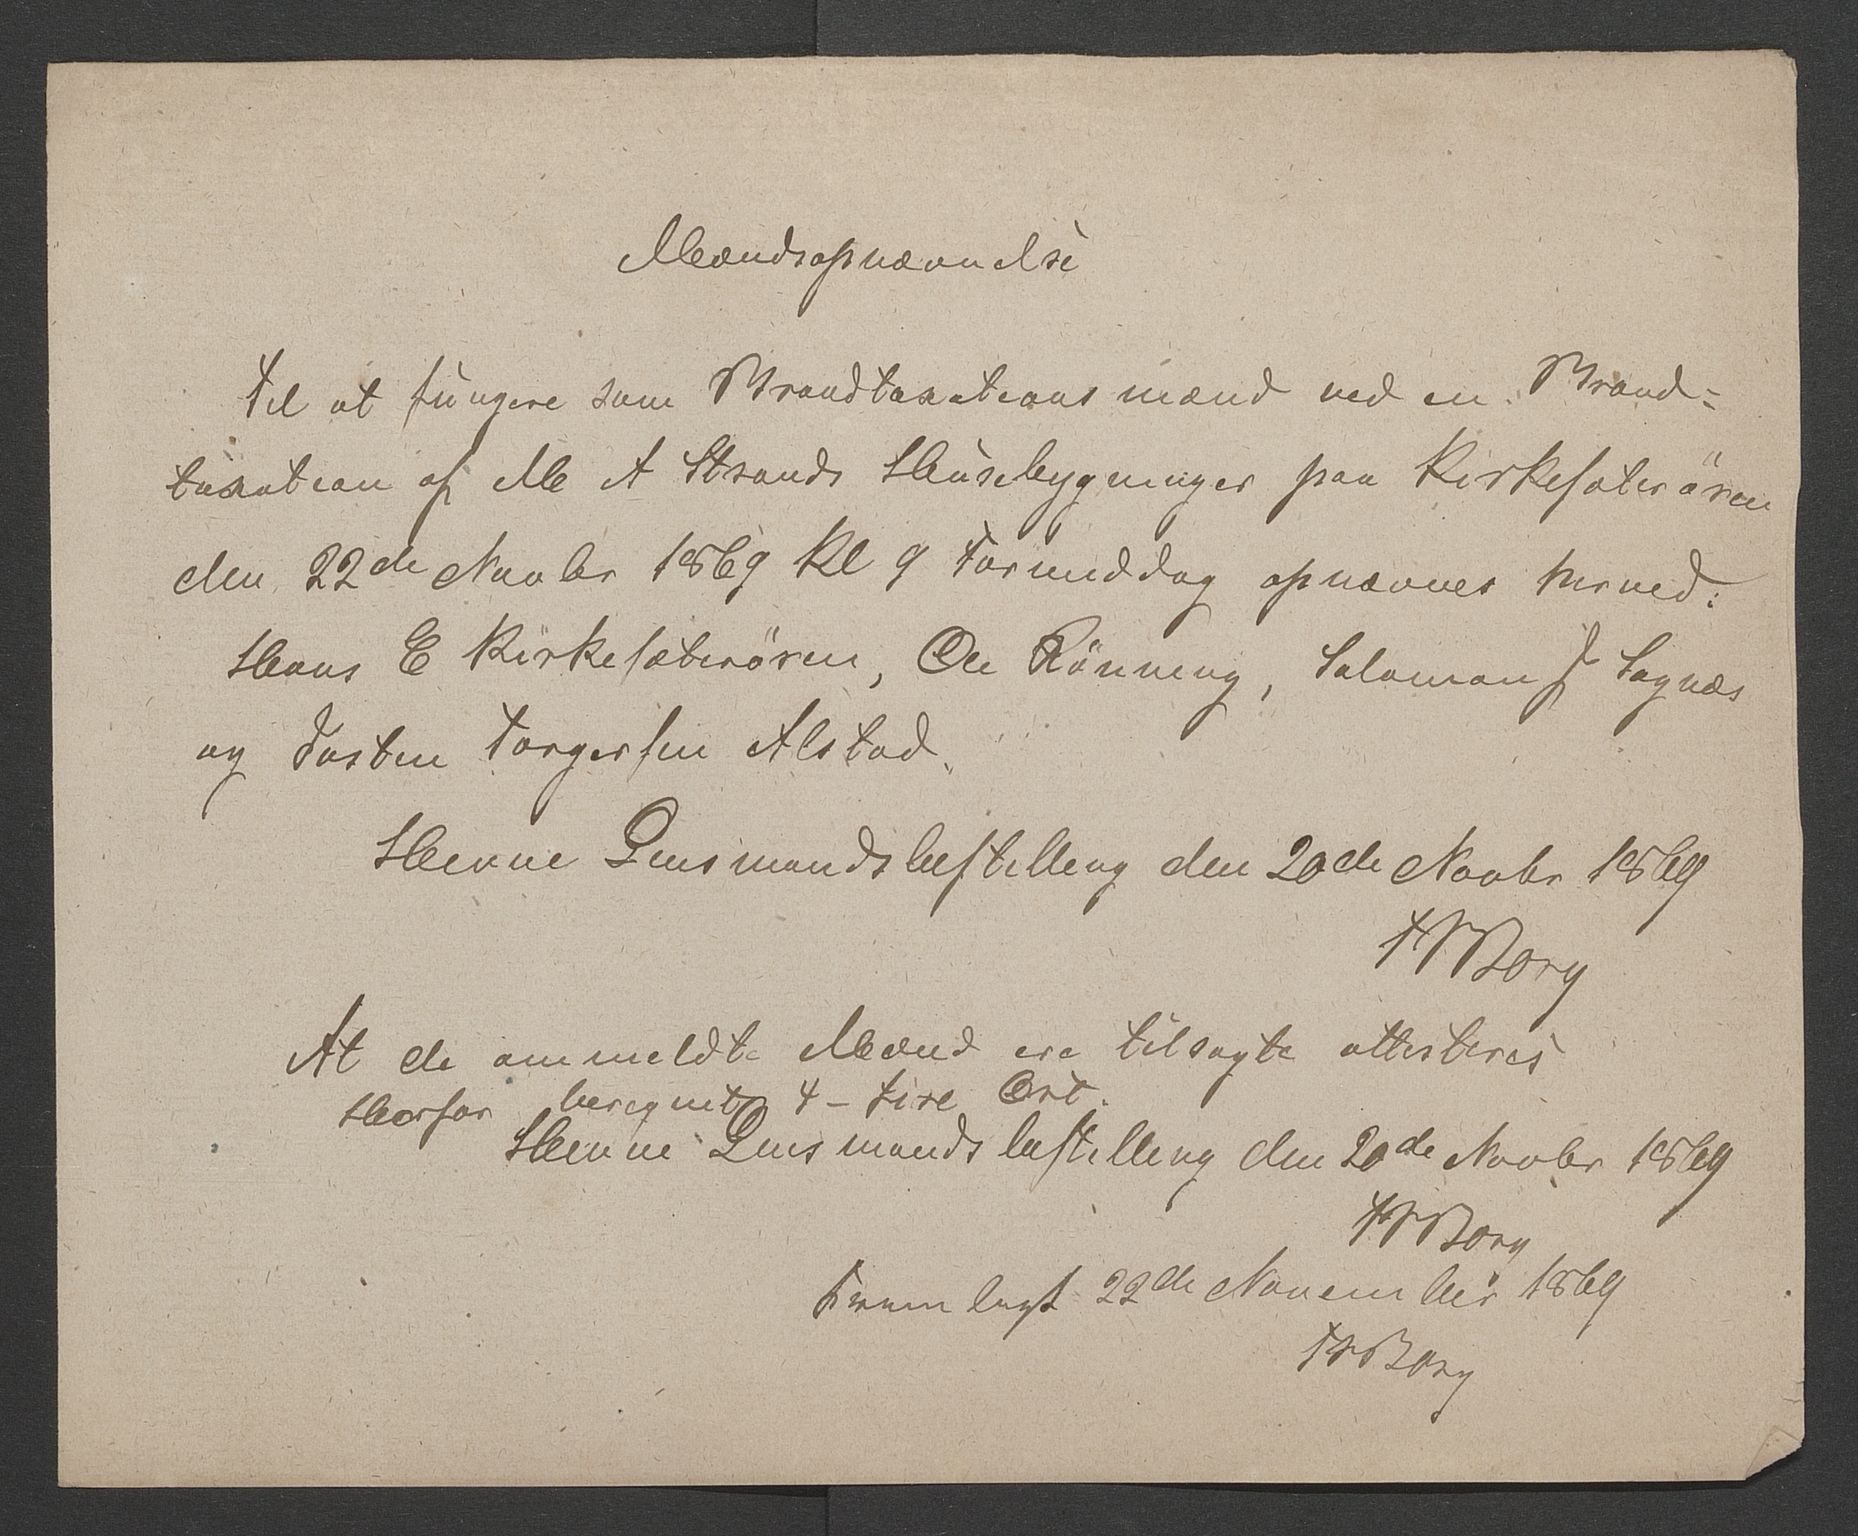 Mændsopnævnelse
Til at fungere som Brandtaxationsmænd ved en Brand=
taxation af M A Strands Husebygninger paa Kirkesæterøren
den 22de Novbr 1869 Kl 9 Formiddag opnævnes herved:
Hans E Kirkesæterøren, Ole Rönning, Salomon J Sagnæs
og Tosten Torgersen Alstad.
Hevne Lensmandsbestilling den 20de Novbr 1869
Borg
At de ommeldte Mænd ere tilsagte attesteres
Herfor beregnet 4 - fire Ort.
Hevne Lensmandsbestilling den 20de Novbr 1869
Borg
Fremlagt 22de November 1869
Borg